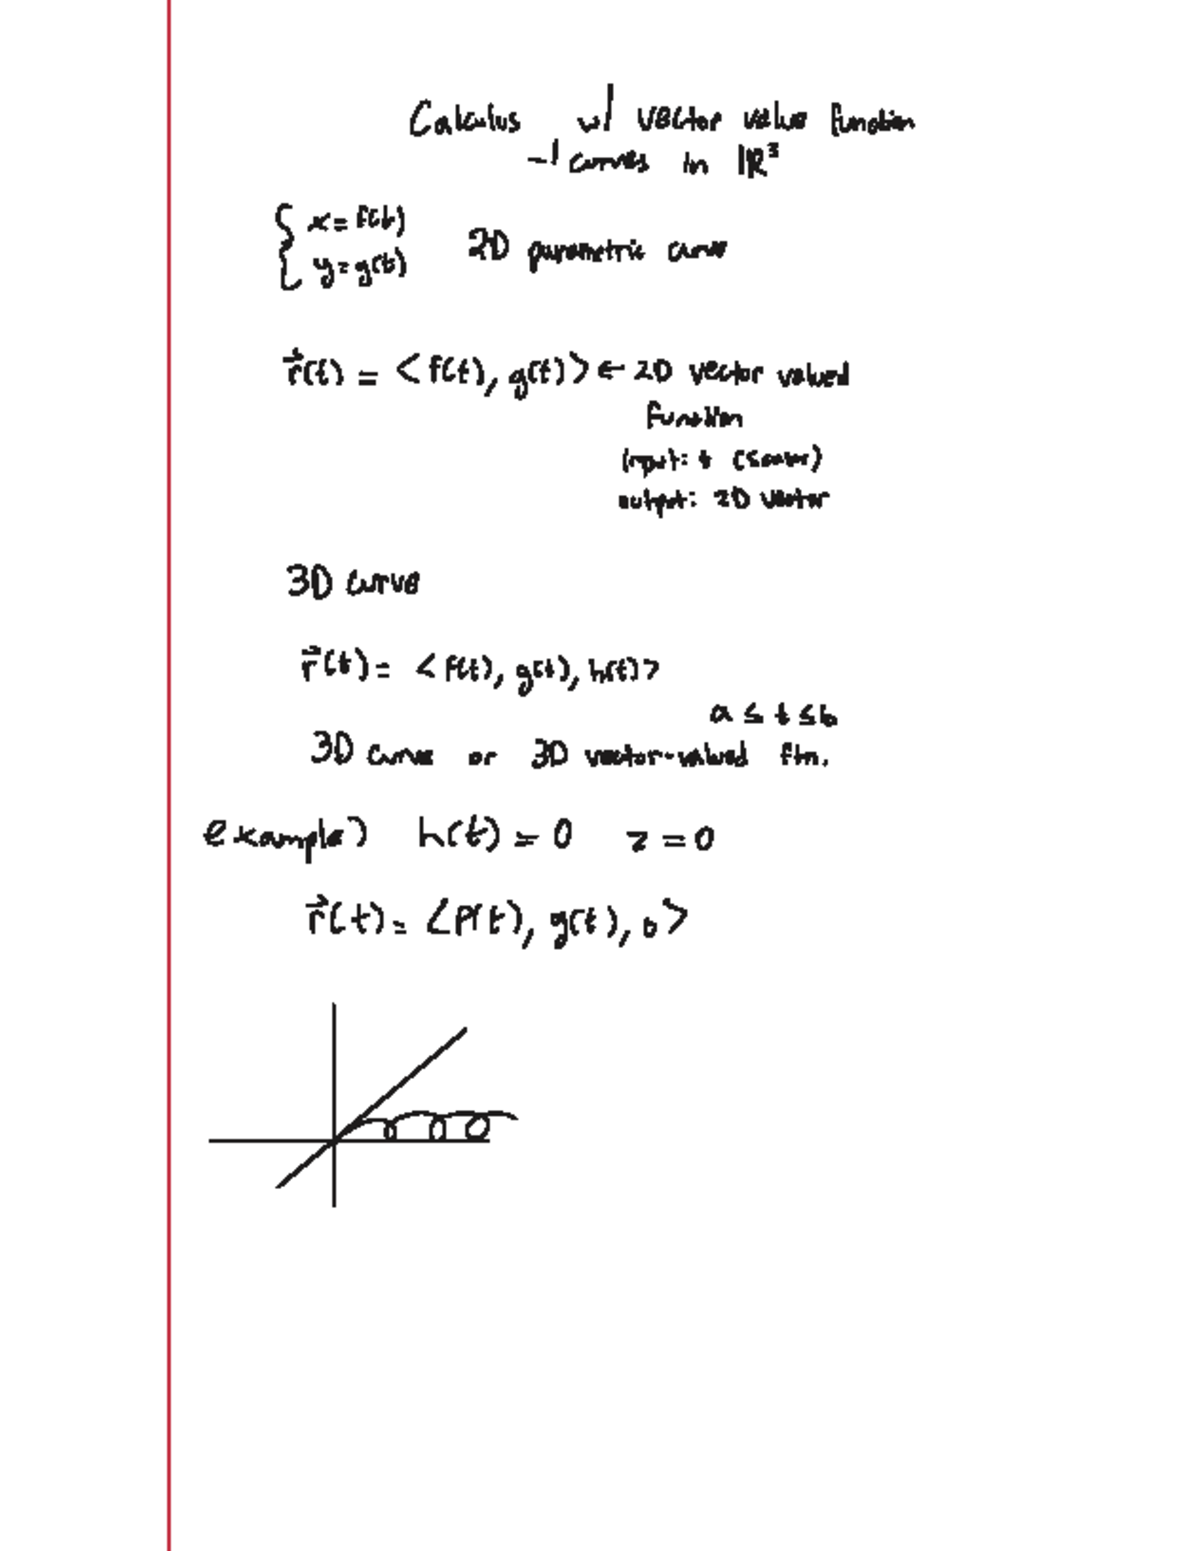 Calculus w/ vector value function
→ curves in ℝ³
{ x = f(t)
{ y = g(t)
2D parametric curve
r⃗(t) = <f(t), g(t)> ← 2D vector valued
function
input: t (scalar)
output: 2D vector
3D curve
r⃗(t) = <f(t), g(t), h(t)>
a ≤ t ≤ b
3D curve or 3D vector-valued ftn.
example) h(t) = 0 z = 0
r⃗(t) = <f(t), g(t), 0>